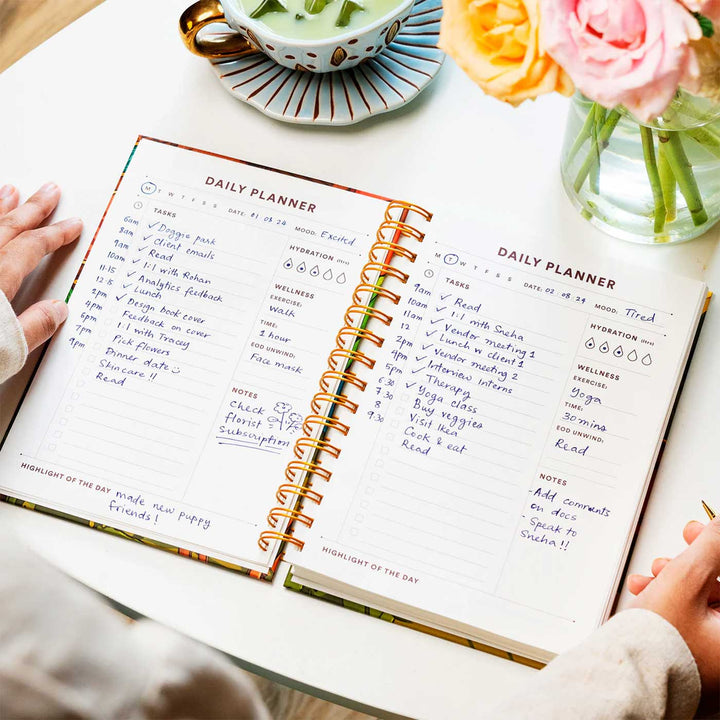 DAILY PLANNER
M T W T F S S DATE: 01 08 24 MOOD: Excited
TASKS
6am ✓ Doggie park
8am ✓ Client emails
9am ✓ Read
10am ✓ 1:1 with Rohan
11:15 ✓ Analytics feedback
12:15 ✓ Lunch
2pm ✓ Design book cover
4pm Feedback on cover
5pm 1:1 with Tracey
6pm Pick flowers
7pm Dinner date
Skincare!!
9pm Read
HYDRATION
WELLNESS
EXERCISE:
Walk
TIME:
1 hour
EOD UNWIND:
Face mask
NOTES
Check
florist
subscription
HIGHLIGHT OF THE DAY
made new puppy
friends!
DAILY PLANNER
M T W T F S S DATE: 02 08 24 MOOD: Tired
TASKS
9am ✓ Read
10am ✓ 1:1 with Sneha
11am ✓ Vendor meeting 1
12 ✓ Lunch w client 1
2pm ✓ Vendor meeting 2
4pm ✓ Interview Interns
5pm ✓ Therapy
6.30 ✓ Yoga class
7.30 Buy veggies
8 Visit Ikea
Cook & eat
9:30 Read
HYDRATION
WELLNESS
EXERCISE:
Yoga
TIME:
30 mins
EOD UNWIND:
Read
NOTES
- Add comments
on docs
- Speak to
Sneha!!
HIGHLIGHT OF THE DAY